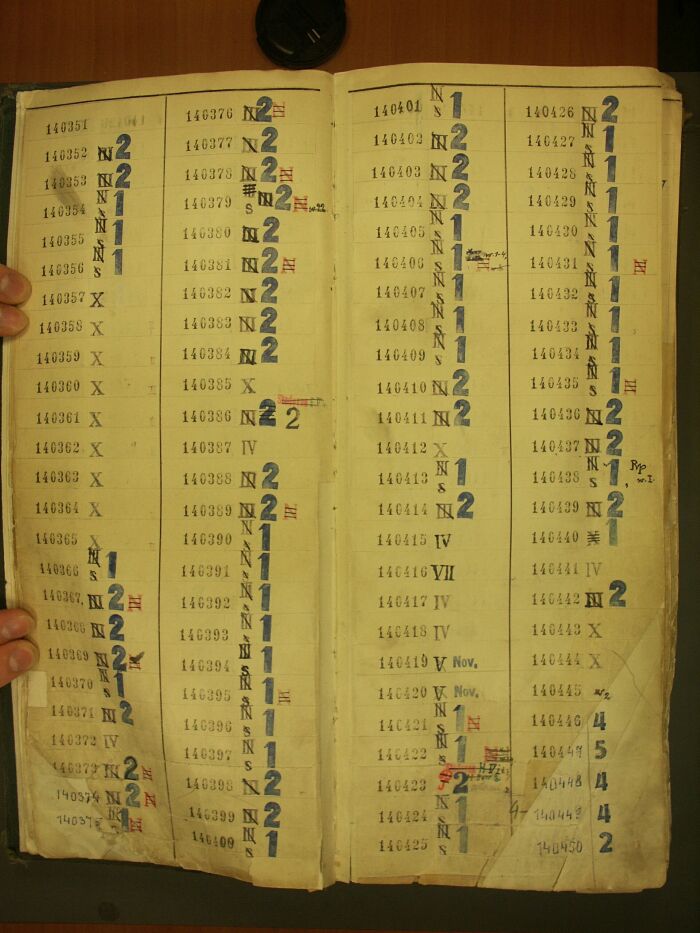 140351
140352 N 2
140353 N 2
140354 N s 1
140355 N s 1
140356 N s 1
140357 X
140358 X
140359 X
140360 X
140361 X
140362 X
140363 X
140364 X
140365 X
140366 N s 1
140367 N 2 III
140368 N 2
140369 N 2
140370 N s 1
140371 N 2
140372 IV
140373 N 2 III
140374 N 2
140375 1
140376 N 2 III
140377 N 2
140378 N 2 III
140379 s N 2 III
140380 N 2
140381 N 2 III
140382 N 2
140383 N 2
140384 N 2
140385 X
140386 N 2 2
140387 IV
140388 N 2
140389 N 2 III
140390 N s 1
140391 N s 1
140392 N s 1
140393 N s 1
140394 N s 1
140395 N s 1 III
140396 N s 1
140397 N s 1
140398 N 2
140399 N 2
140400 N s 1
140401 N s 1
140402 N 2
140403 N 2
140404 N 2
140405 N s 1
140406 N s 1
140407 N s 1
140408 N s 1
140409 N s 1
140410 N 2
140411 N 2
140412 X
140413 N s 1
140414 N 2
140415 IV
140416 VII
140417 IV
140418 IV
140419 V Nov.
140420 V Nov.
140421 N s 1 III
140422 N s 1
140423 2
140424 N s 1
140425 N s 1
140426 N 2
140427 N s 1
140428 N s 1
140429 N s 1
140430 N s 1
140431 N s 1 III
140432 N s 1
140433 N s 1
140434 N s 1
140435 N s 1 III
140436 N 2
140437 N 2
140438 N s 1
140439 N 2
140440 1
140441 IV
140442 N 2
140443 X
140444 X
140445
140446 4
140447 5
140448 4
140449 4
140450 2